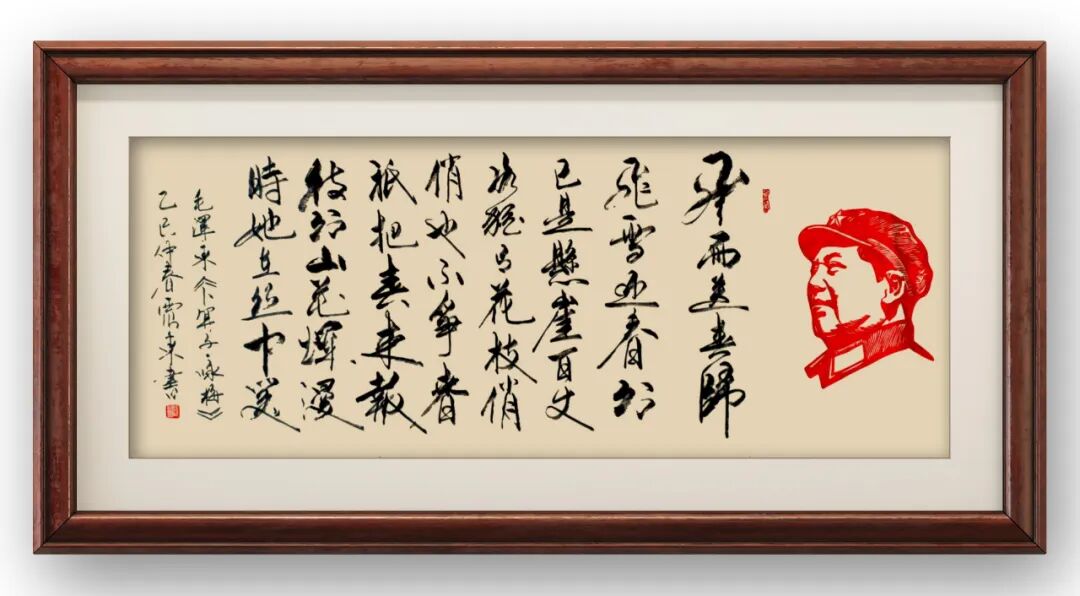 風雨送春歸
飛雪迎春到
已是懸崖百丈
冰猶有花枝俏
俏也不爭春
祇把春來報
待到山花爛漫
時她在叢中笑
毛澤東《卜算子詠梅》
乙巳仲春東書